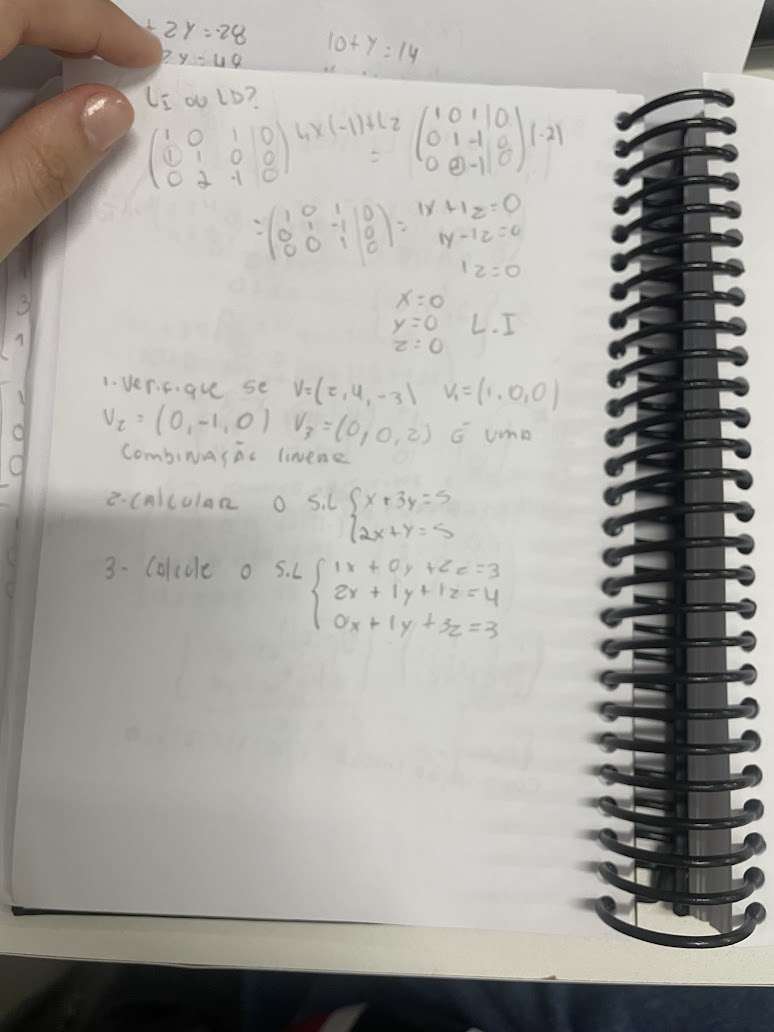 + 2Y = 28
2Y = 40
10 + Y = 14
LI OU LD?
(1 0 1 | 0
1 1 0 | 0
0 2 -1 | 0)
=
(1 0 1 | 0
0 1 -1 | 0
0 2 -1 | 0) (-2)
= (1 0 1 | 0
0 1 -1 | 0
0 0 1 | 0) =
X = 0
Y = 0 L.I
Z = 0
1. Verifique se V = (2, 4, -3) V₁ = (1, 0, 0)
V₂ = (0, -1, 0) V₃ = (0, 0, 2) É UMA
COMBINAÇÃO LINEAR
2- CALCULAR O S.L { x + 3y = 5
2x + y = 5
3- Calcule O S.L { 1x + 0y + 2z = 3
2x + 1y + 1z = 4
0x + 1y + 3z = 3